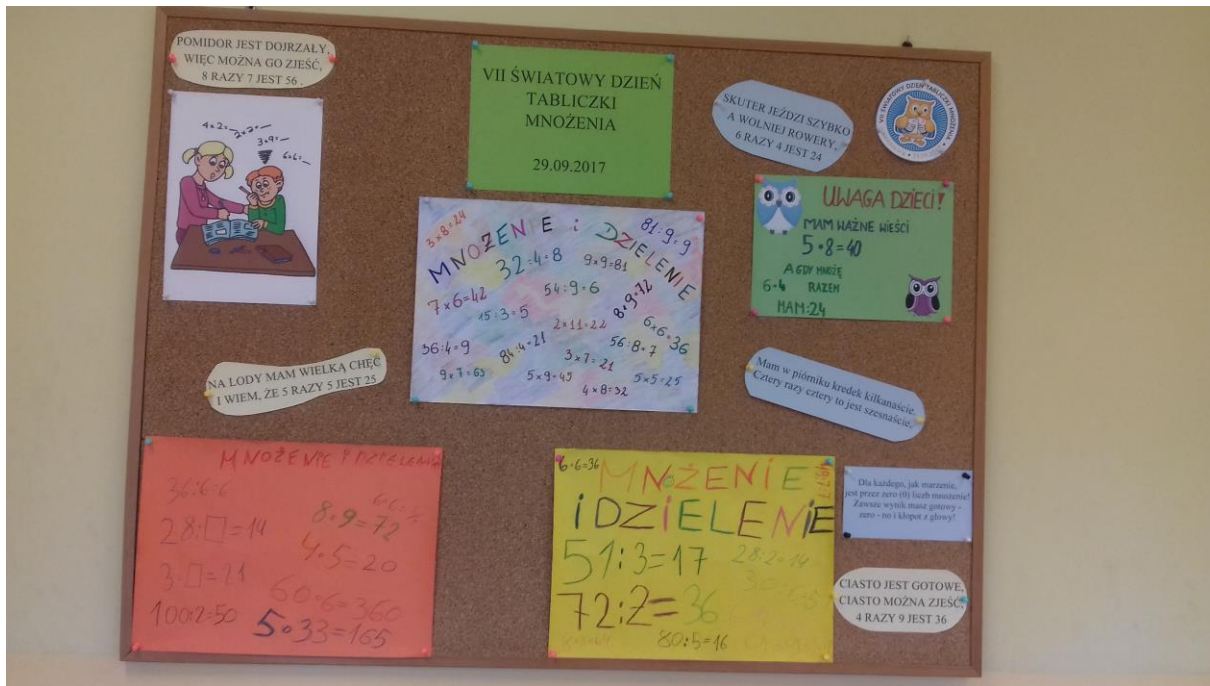 POMIDOR JEST DOJRZAŁY,
WIĘC MOŻNA GO ZJEŚĆ,
8 RAZY 7 JEST 56 .
4×2=_
2×2=_
3×9=_
6×6=_
VII ŚWIATOWY DZIEŃ
TABLICZKI
MNOŻENIA
29.09.2017
SKUTER JEŹDZI SZYBKO
A WOLNIEJ ROWERY,
6 RAZY 4 JEST 24
VII ŚWIATOWY DZIEŃ TABLICZKI MNOŻENIA
UWAGA DZIECI!
MAM WAŻNE WIEŚCI
5•8=40
A GDY MNOŻĘ
6•4 RAZEM
MAM:24
MNOŻENIE i DZIELENIE
3×8=24
81:9=9
32:4=8
9×9=81
7×6=42
54:9=6
8•9=72
15:3=5
2×11=22
6×6=36
36:4=9
84:4=21
56:8=7
3×7=21
9×7=63
5×9=45
5×5=25
4×8=32
NA LODY MAM WIELKĄ CHĘĆ
I WIEM, ŻE 5 RAZY 5 JEST 25
Mam w piórniku kredek kilkanaście.
Cztery razy cztery to jest szesnaście.
MNOŻENIE I DZIELENIE
36:6=6
28:□=14
8•9=72
4•5=20
3•□=21
60•6=360
100:2=50
5•33=165
6•6=36
MNOŻENIE
I DZIELENIE
51:3=17
28:2=14
72:2=36
80:5=16
Dla każdego, jak marzenie,
jest przez zero (0) liczb mnożenie!
Zawsze wynik masz gotowy -
zero - no i kłopot z głowy!
CIASTO JEST GOTOWE,
CIASTO MOŻNA ZJEŚĆ,
4 RAZY 9 JEST 36